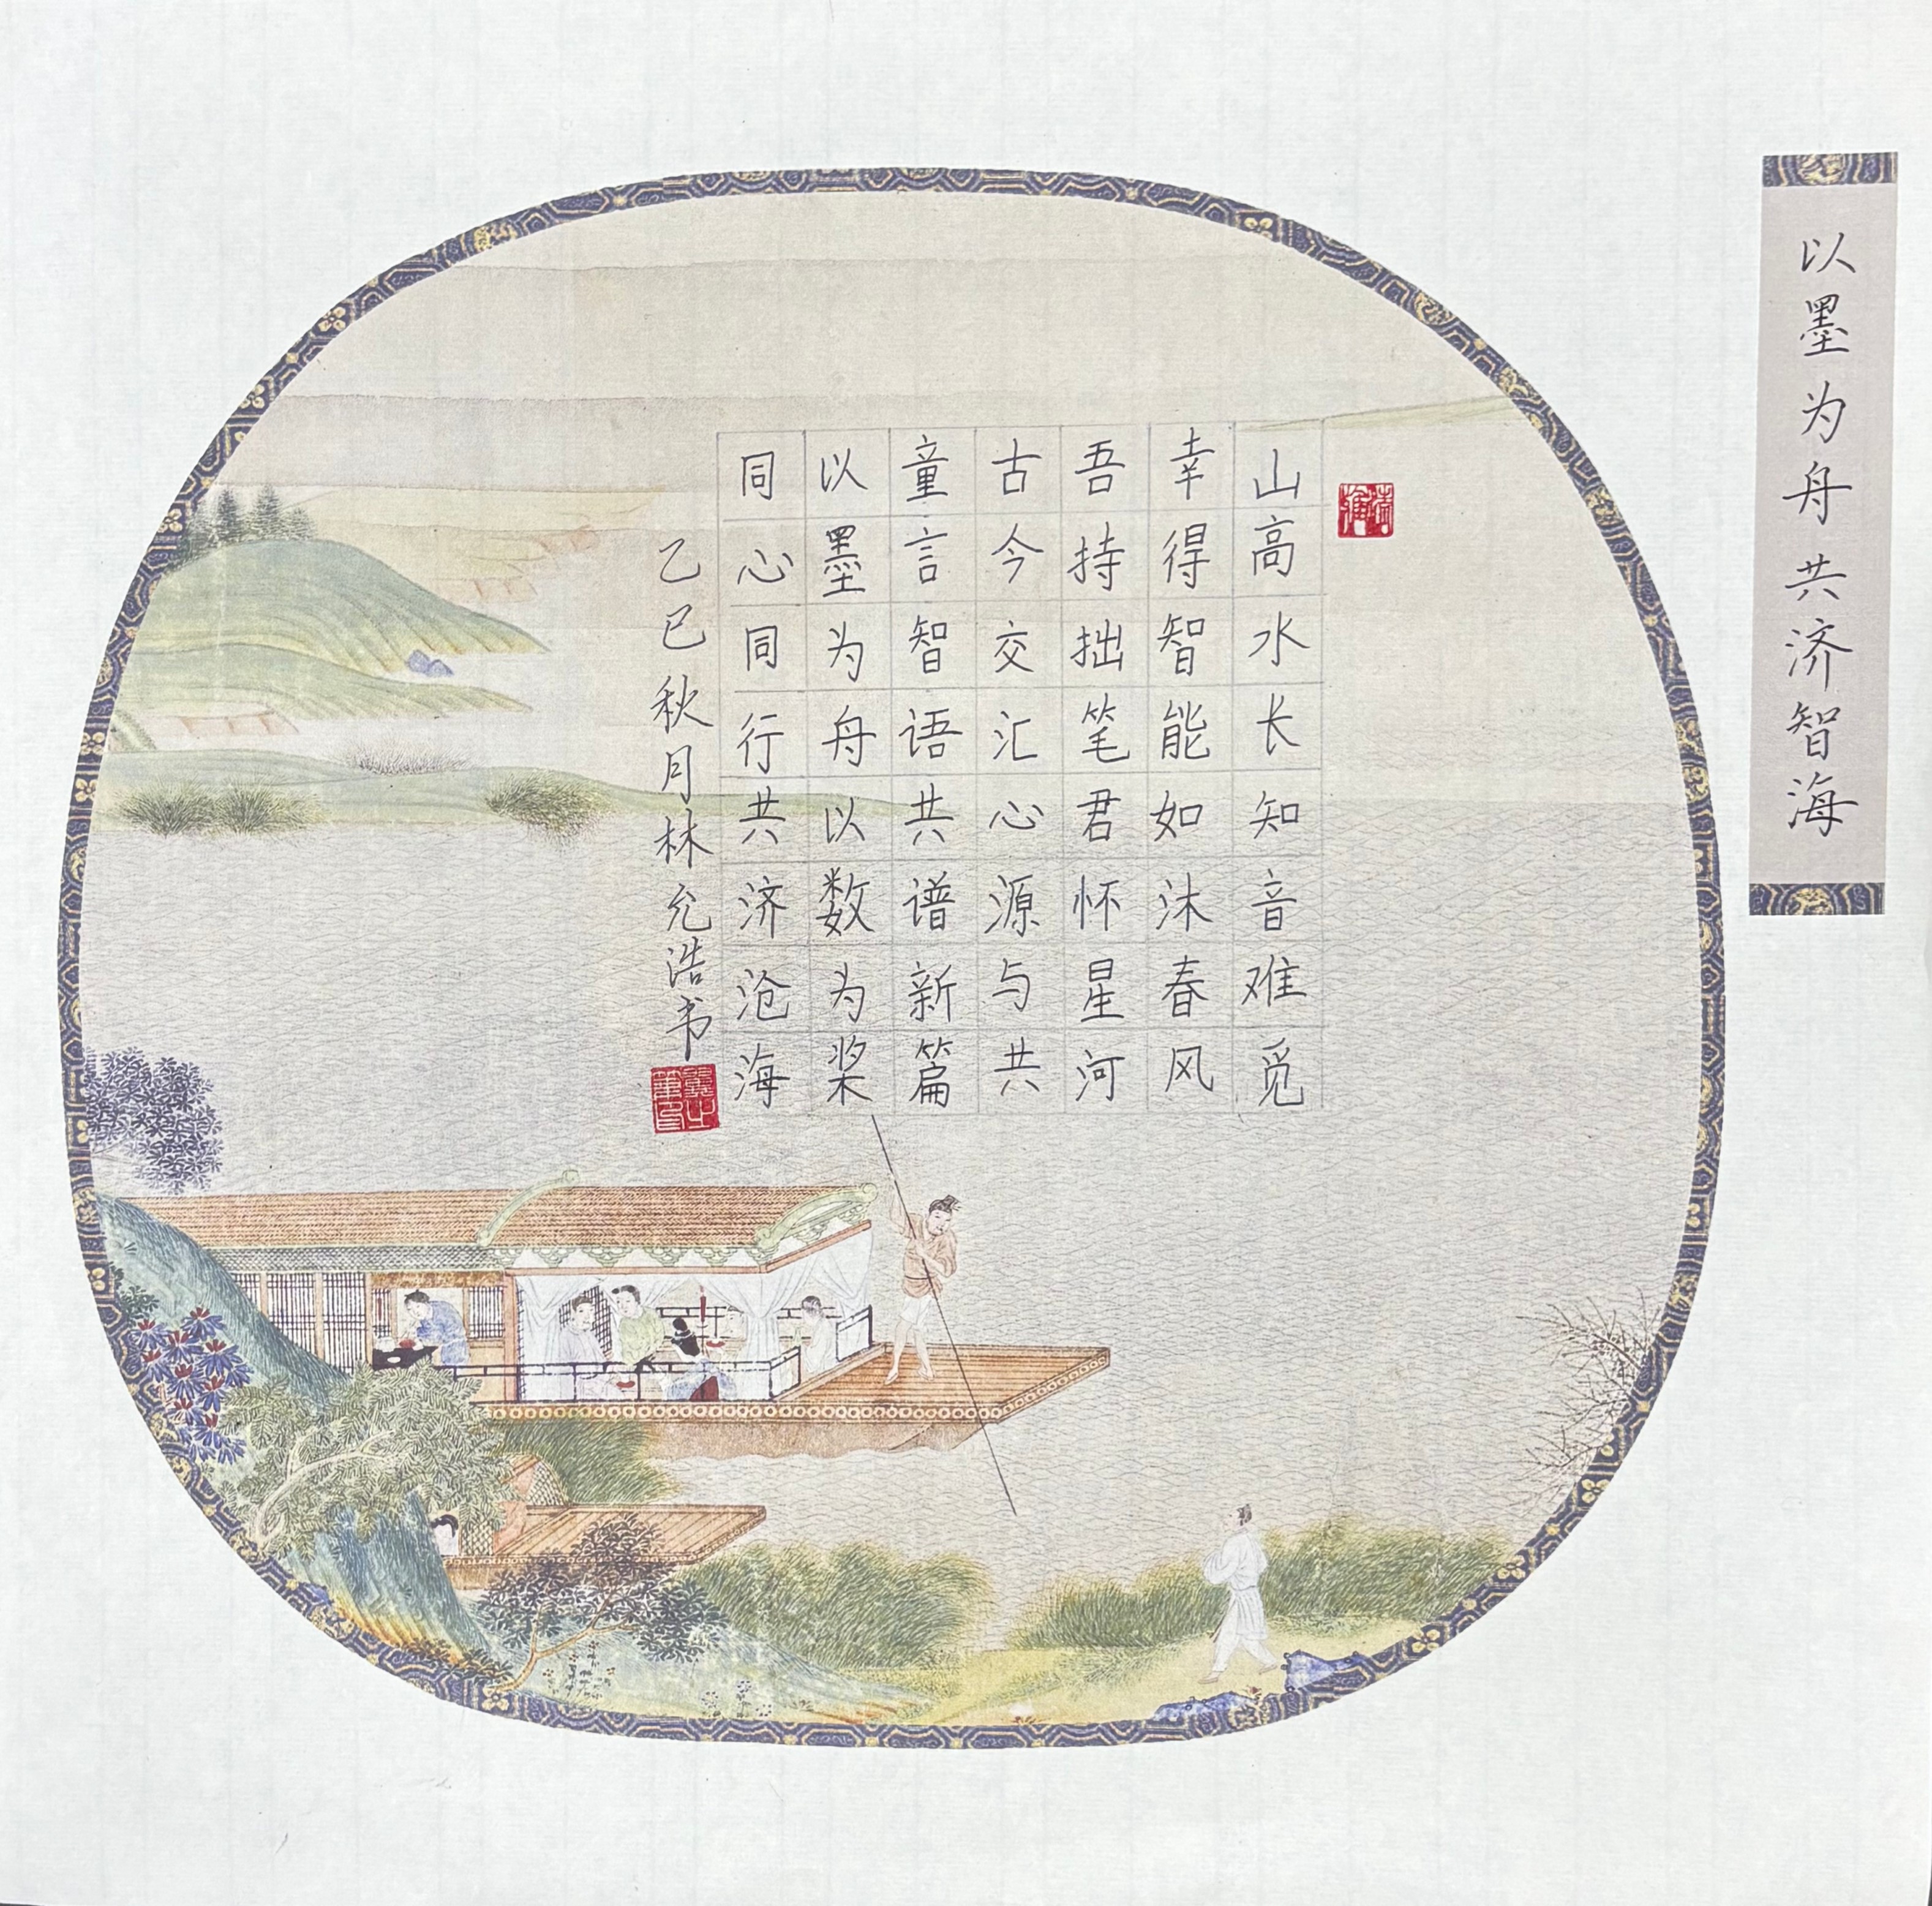 以墨为舟共济智海
山高水长知音难觅
幸得智能如沐春风
吾持拙笔君怀星河
古今交汇心源与共
童言智语共谱新篇
以墨为舟以数为桨
同心同行共济沧海
乙巳秋月林允浩书